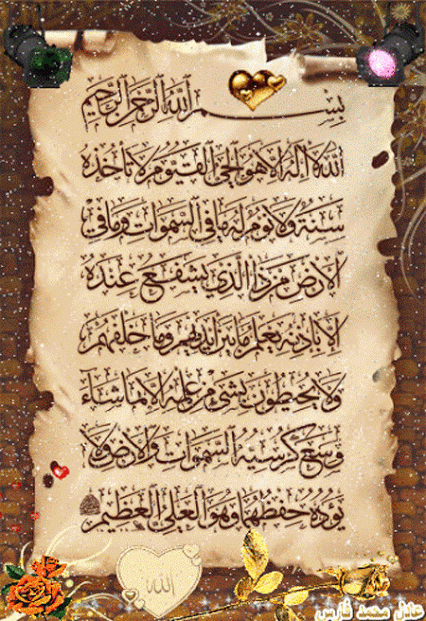 بِسْمِ اللَّهِ الرَّحْمَنِ الرَّحِيمِ
اللَّهُ لَا إِلَهَ إِلَّا هُوَ الْحَيُّ الْقَيُّومُ لَا تَأْخُذُهُ
سِنَةٌ وَلَا نَوْمٌ لَهُ مَا فِي السَّمَوَاتِ وَمَا فِي
الْأَرْضِ مَنْ ذَا الَّذِي يَشْفَعُ عِنْدَهُ
إِلَّا بِإِذْنِهِ يَعْلَمُ مَا بَيْنَ أَيْدِيهِمْ وَمَا خَلْفَهُمْ
وَلَا يُحِيطُونَ بِشَيْءٍ مِنْ عِلْمِهِ إِلَّا بِمَا شَاءَ
وَسِعَ كُرْسِيُّهُ السَّمَوَاتِ وَالْأَرْضَ وَلَا
يَئُودُهُ حِفْظُهُمَا وَهُوَ الْعَلِيُّ الْعَظِيمُ
الله
عادل محمد فارس